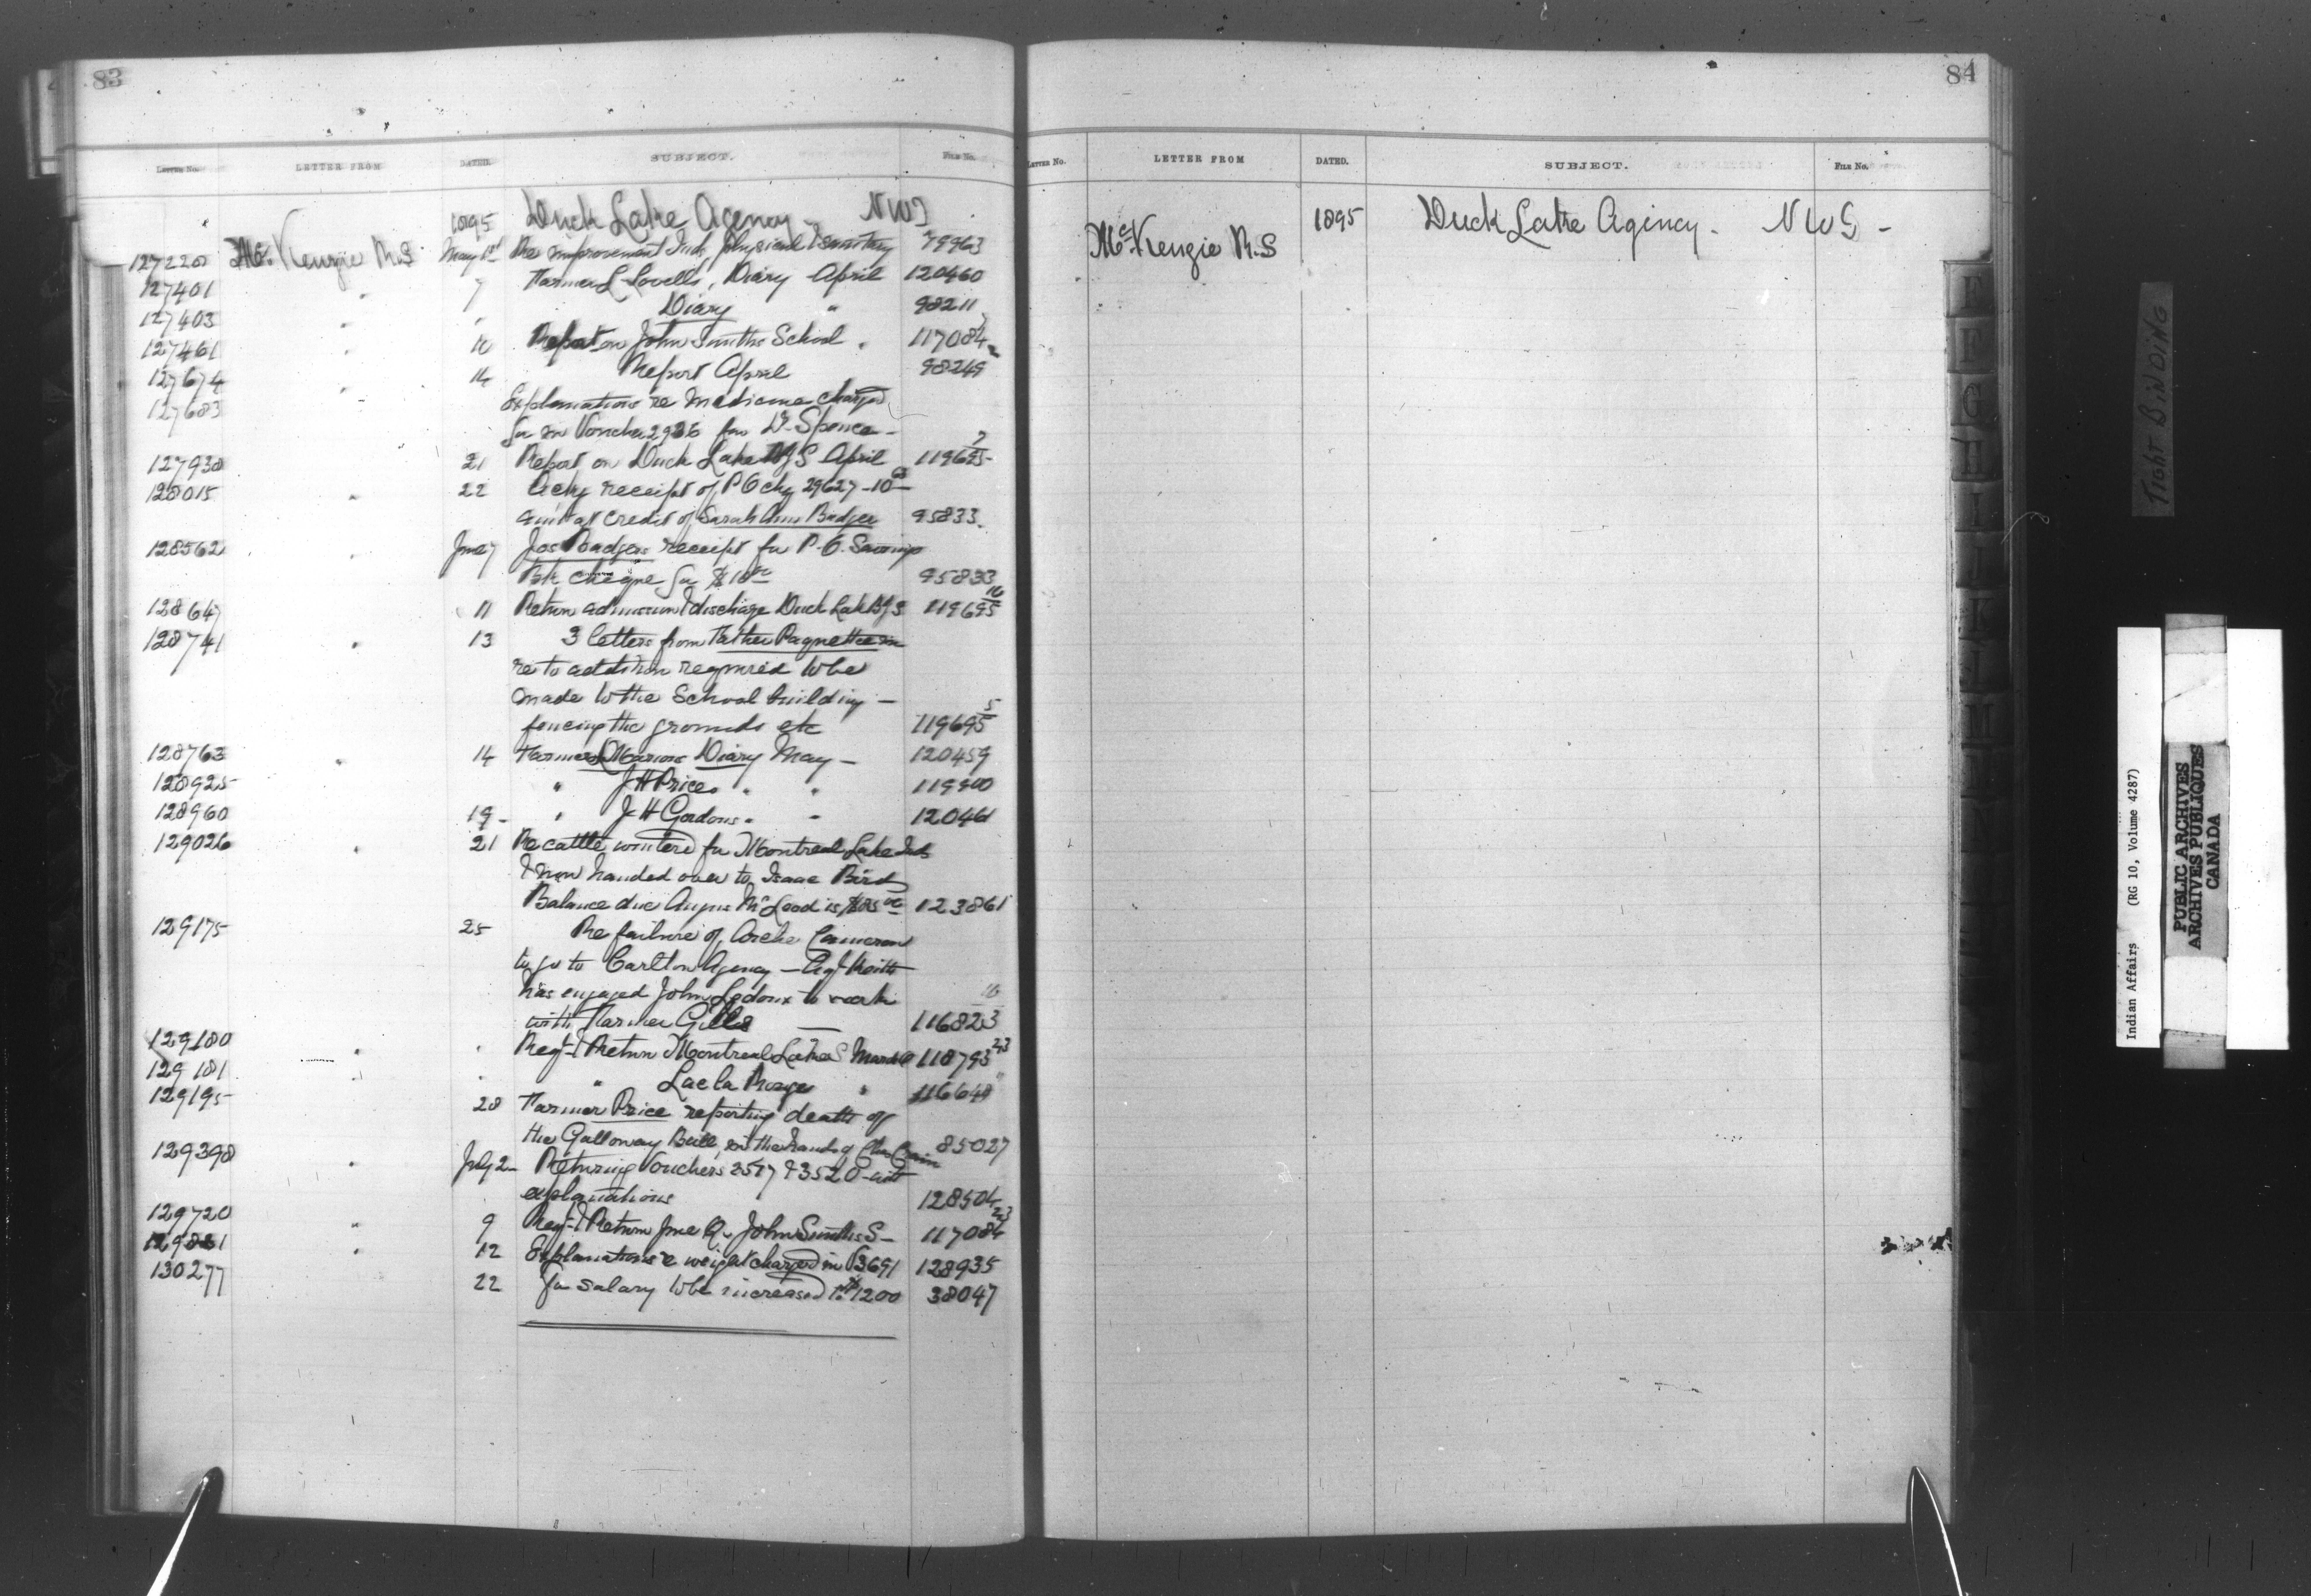 83
LETTER No. LETTER FROM DATED. SUBJECT. FILE No.
1895 Duck Lake Agency NWT
127220 McKenzie R.S May 1st Re improvement Inds physical & sanitary 79963
127401 " 7 Farmer L Lovells, Diary April 120460
127403 " " Diary " 98211
127461 " 10 Report on John Smiths School . 117084
127674 " 14 Report April 98249
127683 Explanations re medicine charged
for in Voucher 2936 for Dr. Spence -
127938 21 Report on Duck Lake B/S April 119695 7
128015 " 22 Ackg receipt of P O chq 29627 - 10
amt at credit of Sarah Ann Badger 95833
128562 " June 7 Jos Badgers receipt for P.O. Savings
Bk cheque for $10 00 95833
128647 11 Return admission & discharge Duck Lake B/S 119695 10
128741 " 13 3 letters from Father Paquette in
re to addition required to be
made to the School building -
fencing the grounds etc 119695 5
128763 " 14 Farmer Marions Diary May - 120459
128925 " J H Prices " " 119900
128960 19 - " J H Gordons " " 120461
129026 " 21 Re cattle wintered for Montreal Lake Inds
& now handed over to Isaac Bird
Balance due Angus McLeod is $85 00 123861
129175 25 Re failure of Archie Cameron
to go to Carlton Agency - Agt Keith
has engaged John Ledoux to work
with Farmer Gillis — 116823
129180 " " Regr & Return Montreal Lake S March Q 118793 23
129181 " " " Lac la Ronge " 116648 "
129195 28 Farmer Price reporting death of
the Galloway Bull, in the hands of 85027
129398 " July 2 Returning Vouchers 3517 & 3520 - with
explanations 128504
129720 " 9 Regr & Return June Q. John Smiths S - 117084 23
129821 " 12 Explanations re weight charged in V3691 128935
130277 22 for salary to be increased to $1200 38047
84
LETTER No. LETTER FROM DATED. SUBJECT. FILE No.
1895 Duck Lake Agency - NWT -
McKenzie R.S
E
F
G
H
I
J
K
L
M
TIGHT BINDING
Indian Affairs (RG 10, Volume 4287)
PUBLIC ARCHIVES
ARCHIVES PUBLIQUES
CANADA